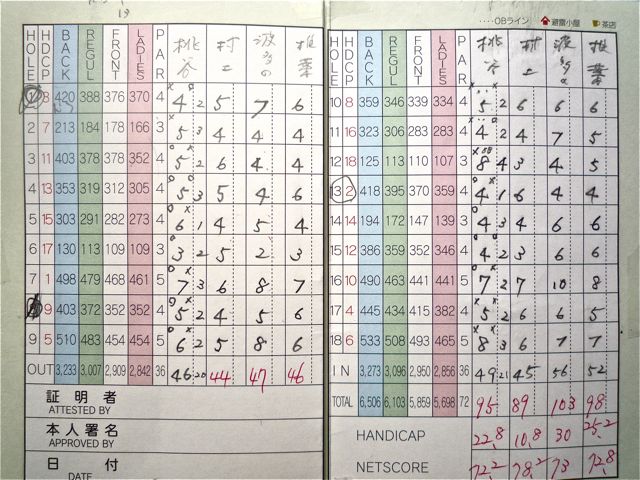 13
‥‥OBライン 避雷小屋 茶店
HOLE HDCP BACK REGUL FRONT LADIES PAR 桃谷 村上 波多の 椎葉
1 3 420 388 376 370 4 4 2 5 7 6
2 7 213 184 178 166 3 5 3 4 4 4
3 11 403 378 378 352 4 5 2 6 4 4
4 13 353 319 312 305 4 5 3 5 4 6
5 15 303 291 282 273 4 6 1 4 5 4
6 17 130 113 109 109 3 3 2 5 2 3
7 1 498 479 468 461 5 7 3 6 8 7
9 403 372 352 352 4 5 2 4 5 6
9 5 510 483 454 454 5 6 2 5 8 6
OUT 3,233 3,007 2,909 2,842 36 46 20 44 47 46
証明者
ATTESTED BY
本人署名
APPROVED BY
日付
DATE
HOLE HDCP BACK REGUL FRONT LADIES PAR 桃谷 村上 波多の 椎葉
10 8 359 346 339 334 4 5 2 6 6 6
11 16 323 306 283 283 4 4 2 4 7 5
12 18 125 113 110 107 3 8 4 3 4 5
13 2 418 395 370 359 4 4 1 6 4 4
14 14 194 172 147 139 3 4 3 4 6 6
15 12 386 359 352 346 4 4 2 3 6 6
16 10 490 463 441 441 5 7 2 7 10 8
17 4 445 434 415 382 4 5 2 6 6 5
18 6 533 508 493 465 5 8 3 6 7 7
IN 3,273 3,096 2,950 2,856 36 49 21 45 56 52
TOTAL 6,506 6,103 5,859 5,698 72 95 89 103 98
HANDICAP 22.8 10.8 30 25.2
NETSCORE 72.2 78.2 73 72.8